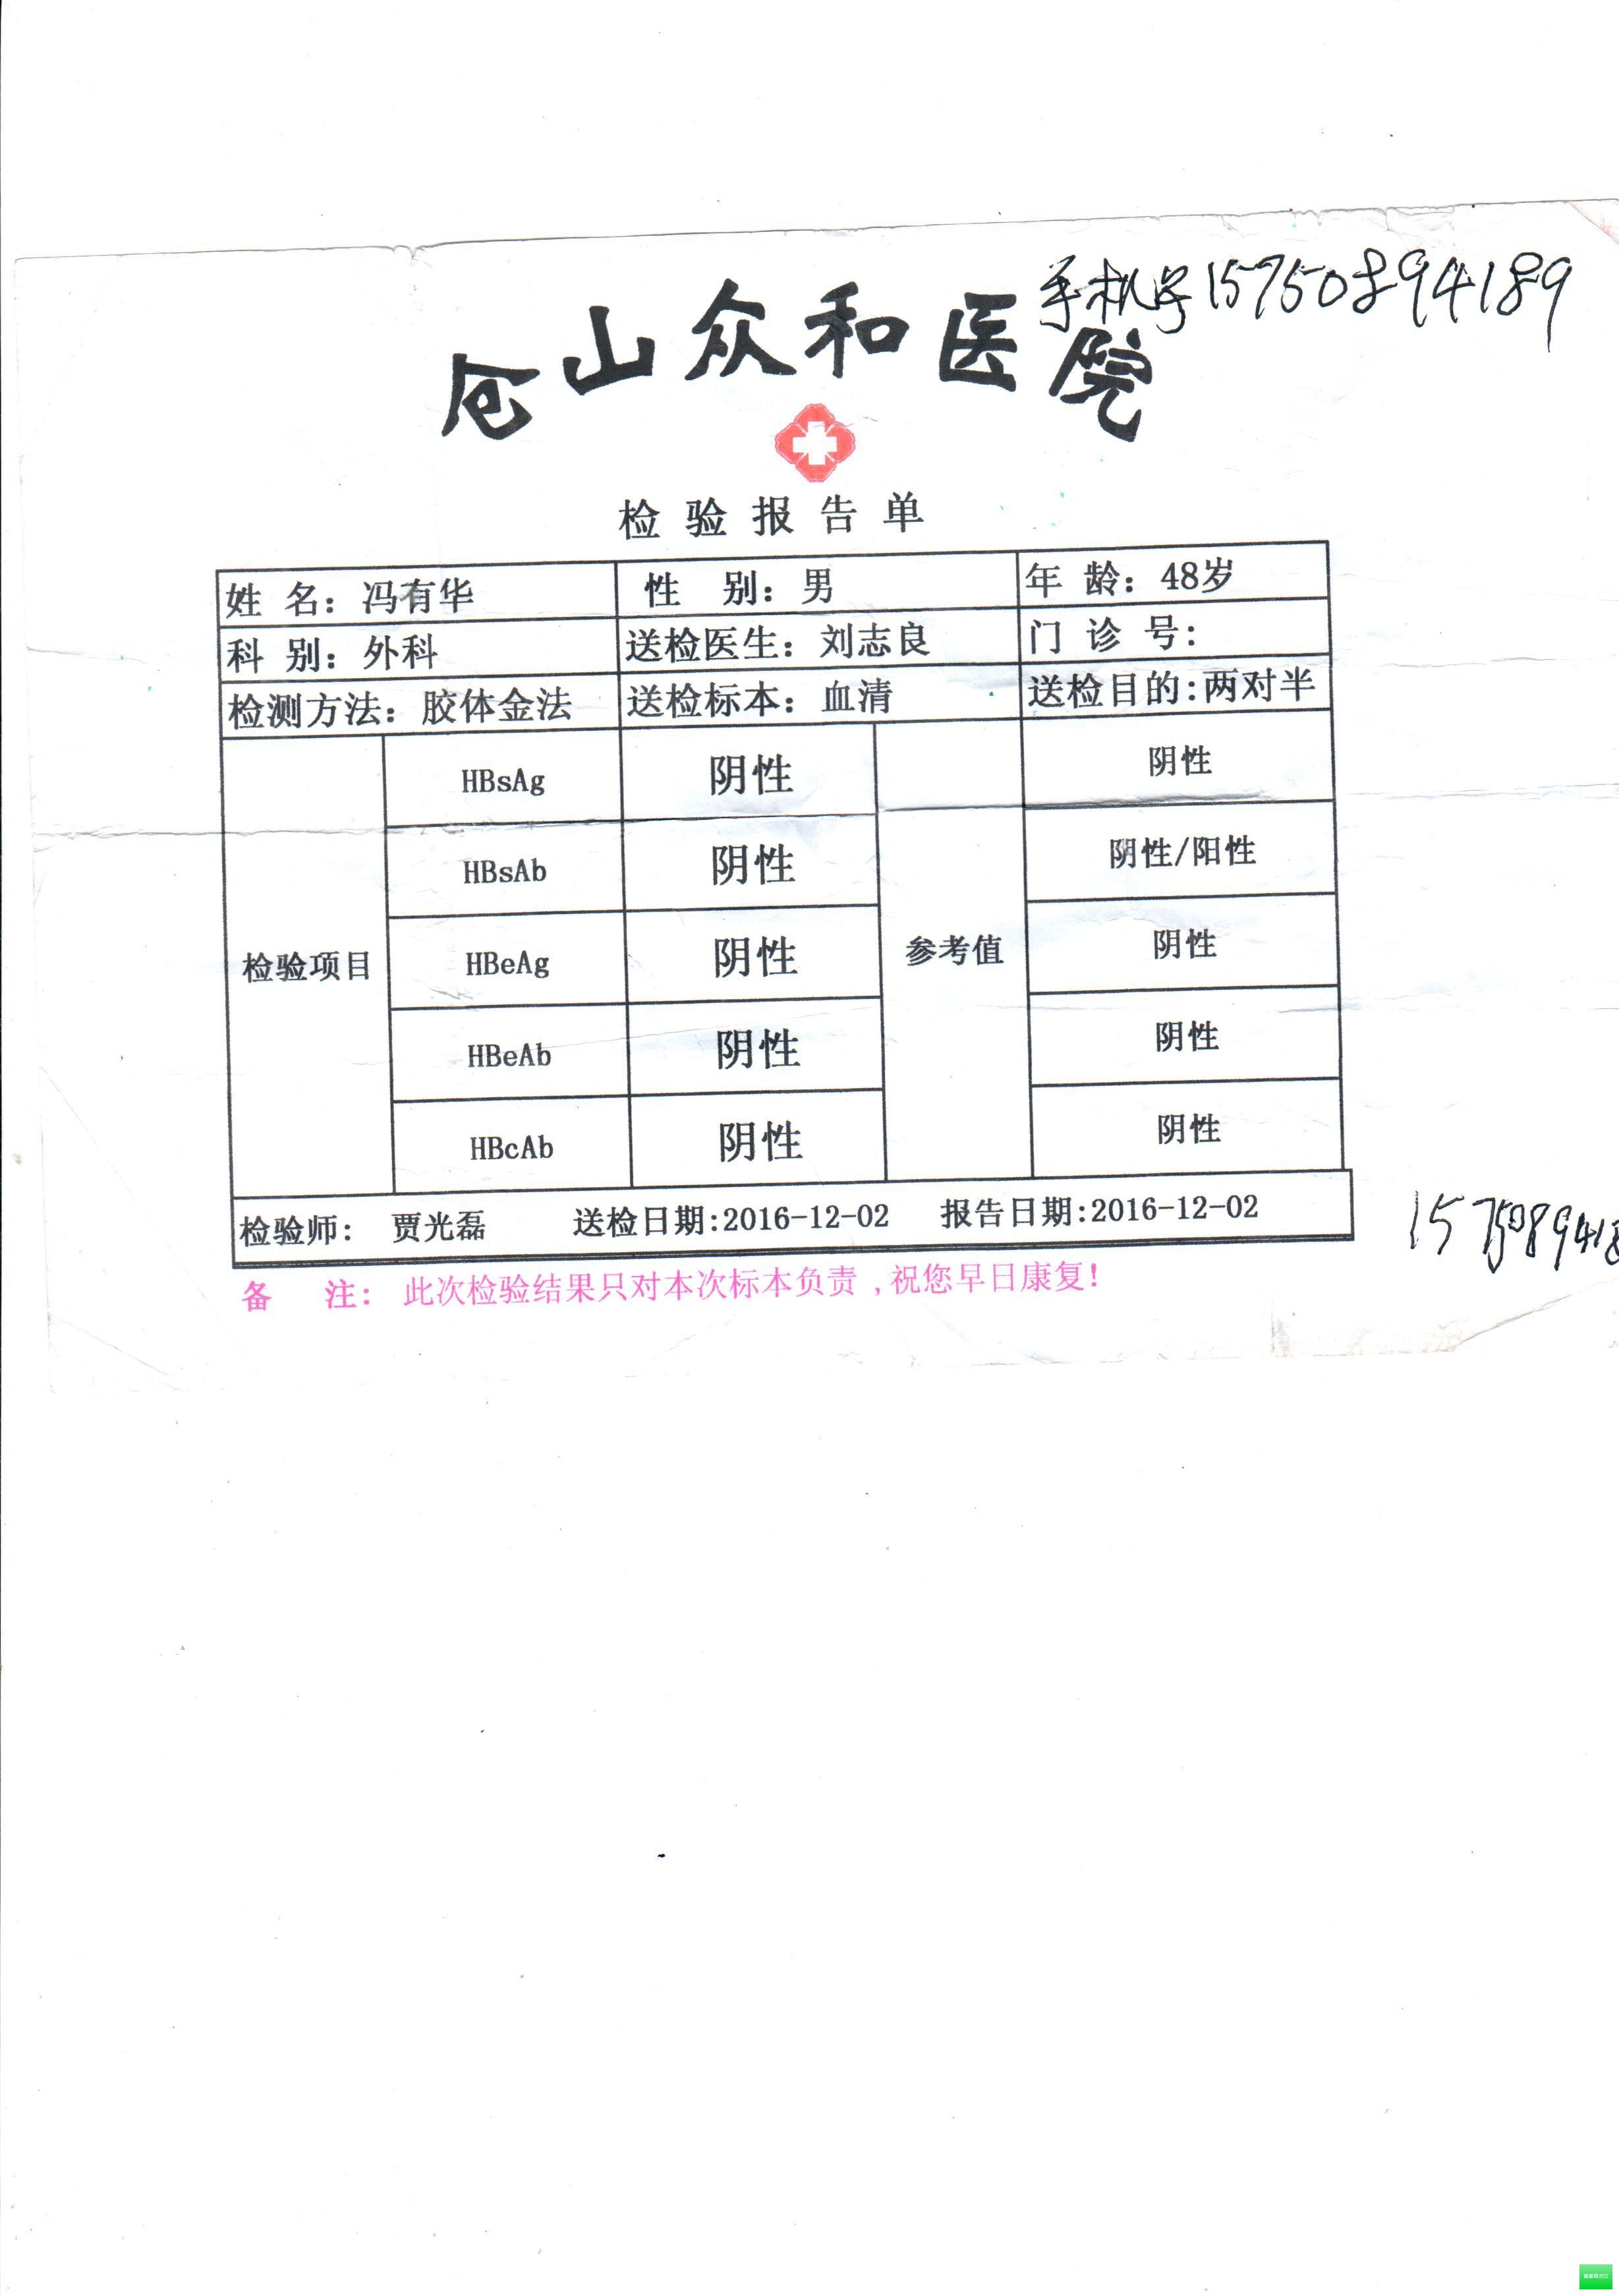 手机号15750894189
仓山众和医院
检验报告单
姓 名：冯有华 性 别：男 年 龄：48岁
科 别：外科 送检医生：刘志良 门 诊 号：
检测方法：胶体金法 送检标本：血清 送检目的:两对半
HBsAg 阴性 阴性
HBsAb 阴性 阴性/阳性
检验项目 HBeAg 阴性 参考值 阴性
HBeAb 阴性 阴性
HBcAb 阴性 阴性
检验师： 贾光磊 送检日期:2016-12-02 报告日期:2016-12-02
1575089418
备 注： 此次检验结果只对本次标本负责,祝您早日康复!